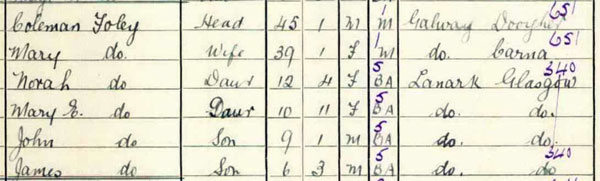 651
Coleman Foley Head 45 1 M M Galway
1 651
Mary do. Wife 39 1 F M do. Carna
5 340
Norah do Daur 12 4 F BA Lanark Glasgow
5
Mary E. do Daur 10 11 F BA do. do.
5
John do Son 9 1 M BA do. do.
5 340
James do Son 6 3 M BA do do